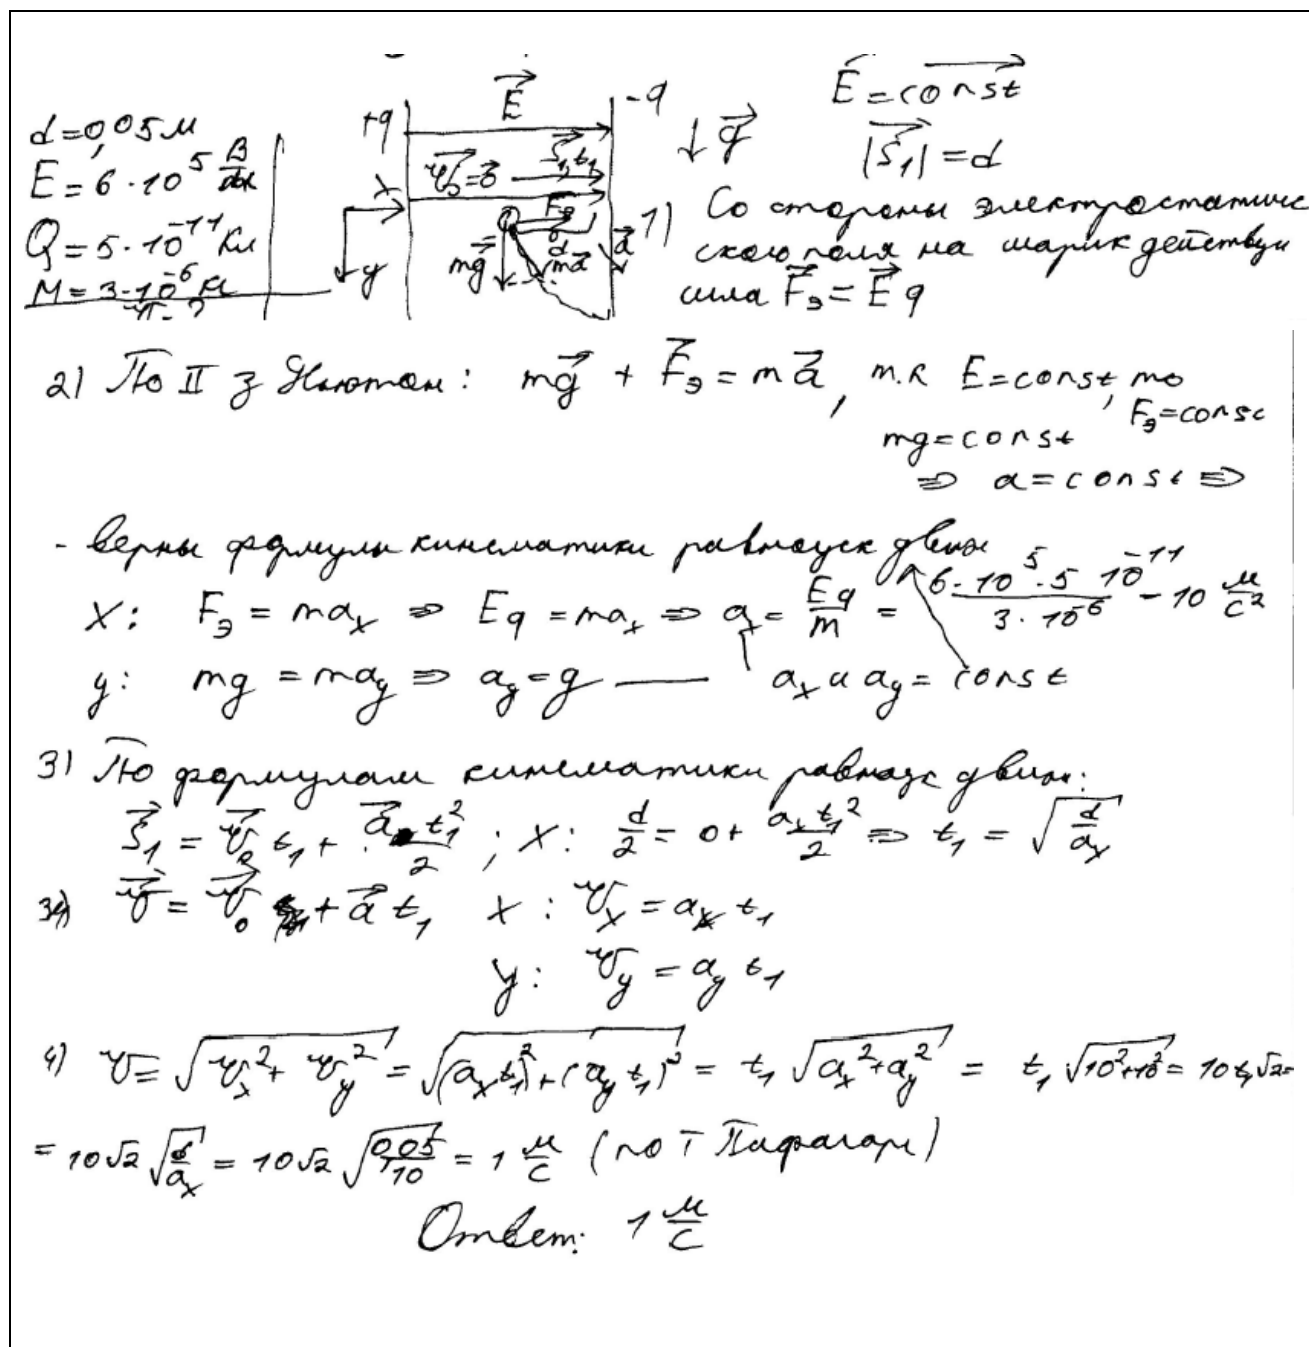 d=0,05м
E = 6 · 10^5 В/м
Q = 5 · 10^-11 Кл
M = 3 · 10^-6 кг
v - ?
+q E⃗ -q
v⃗₀=0⃗ S⃗₁, t₁
x
F⃗э
d
mg⃗ ma⃗ a⃗
y
↓ g⃗
E⃗ = const
|S⃗₁| = d
1) Со стороны электростатиче
ского поля на шарик действуе
сила F⃗э = E⃗ q
2) По II з Ньютон: mg⃗ + F⃗э = ma⃗, т.к E=const, то
Fэ=const
mg=const
⇒ a=const ⇒
- верны формулы кинематики равноуск движ
X: Fэ = maₓ ⇒ Eq = maₓ ⇒ aₓ = Eq/m = 6·10^5·5 10^-11/3·10^-6 - 10 м/с²
y: mg = ma_y ⇒ a_y = g — aₓ и a_y = const
3) По формулам кинематики равноус движ:
S⃗₁ = v⃗₀ t₁ + a⃗ t₁²/2 ; X: d/2 = 0 + aₓ t₁²/2 ⇒ t₁ = √(d/aₓ)
v⃗ = v⃗₀ + a⃗ t₁ X: vₓ = aₓ t₁
y: v_y = a_y t₁
4) v = √(vₓ² + v_y²) = √((aₓt₁)² + (a_y t₁)²) = t₁ √(aₓ² + a_y²) = t₁ √(10²+10²) = 10t₁√2 =
= 10√2 √(d/aₓ) = 10√2 √(0,05/10) = 1 м/с (по т Пифагора)
Ответ: 1 м/с